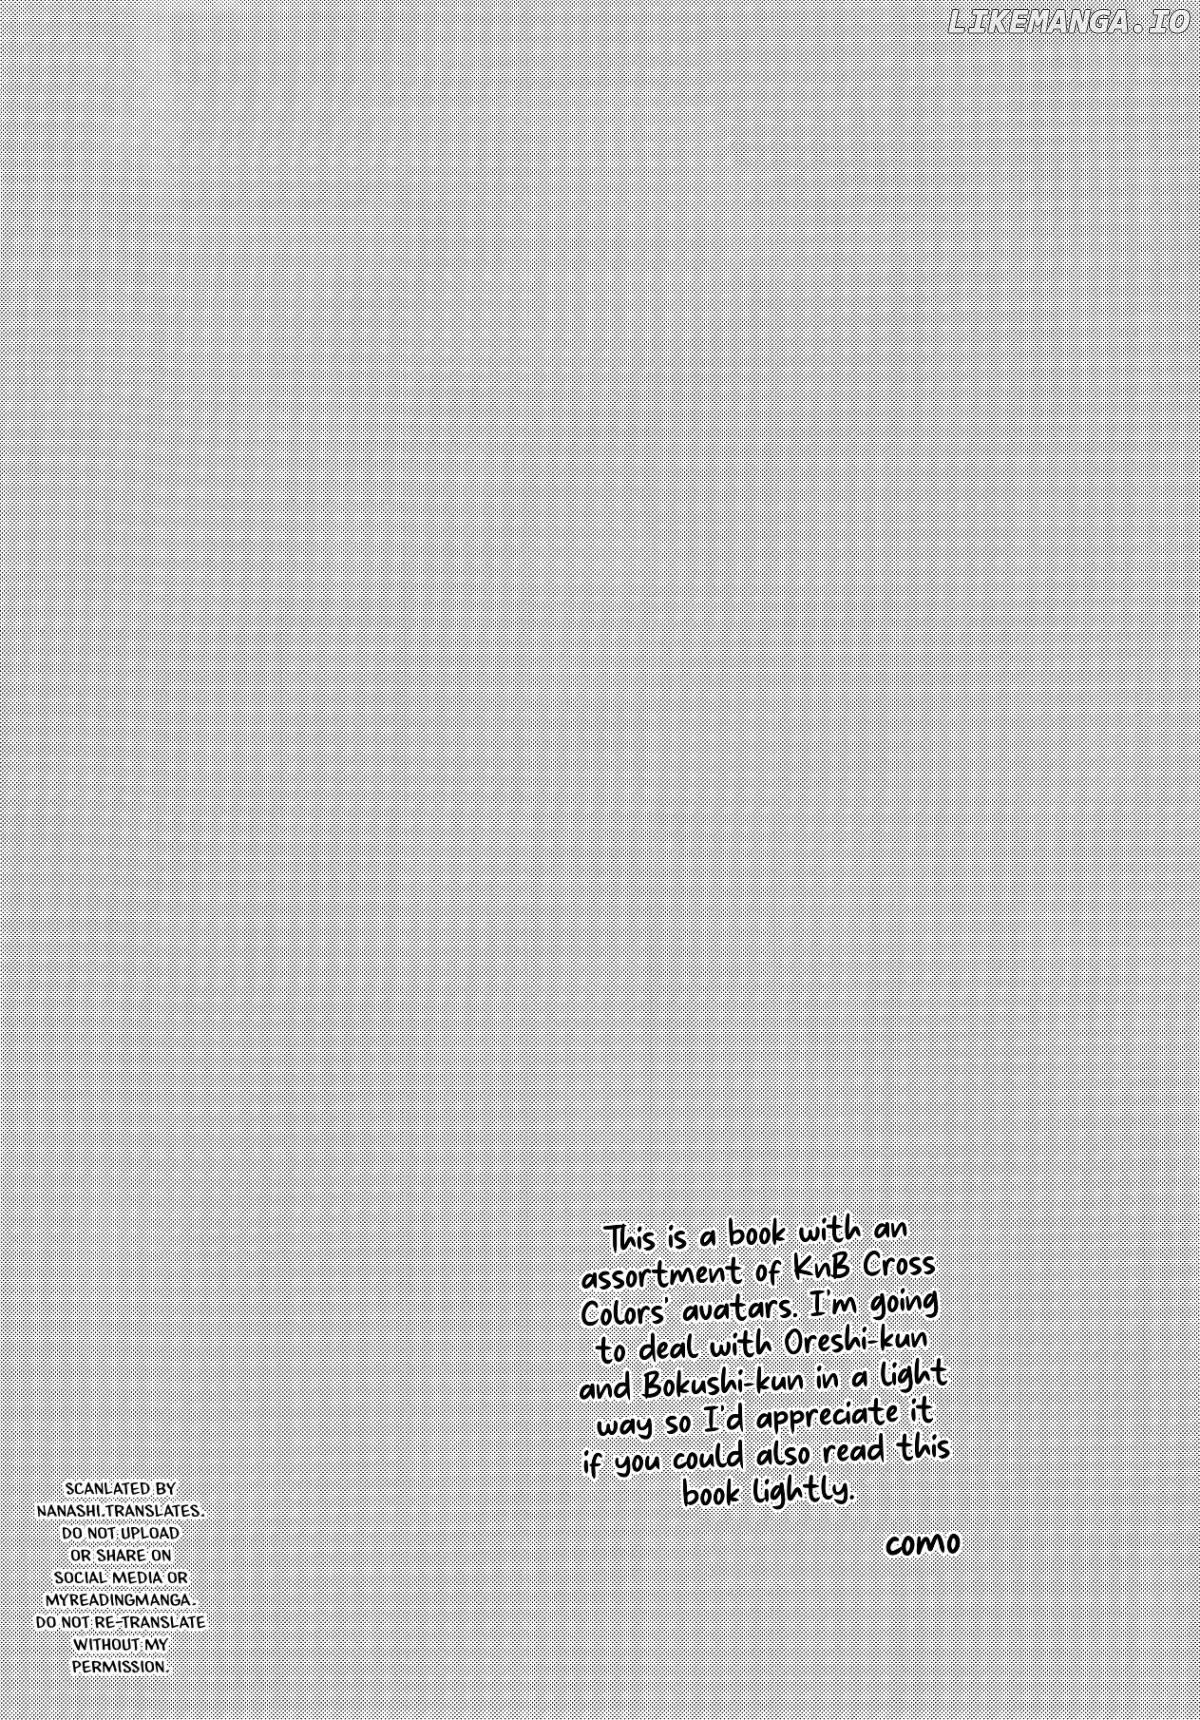 LIKEMANGA.IO
This is a book with an
assortment of KnB Cross
Colors' avatars. I'm going
to deal with Oreshi-kun
and Bokushi-kun in a light
way so I'd appreciate it
if you could also read this
book lightly.
como
SCANLATED BY
NANASHI.TRANSLATES.
DO NOT UPLOAD
OR SHARE ON
SOCIAL MEDIA OR
MYREADINGMANGA.
DO NOT RE-TRANSLATE
WITHOUT MY
PERMISSION.